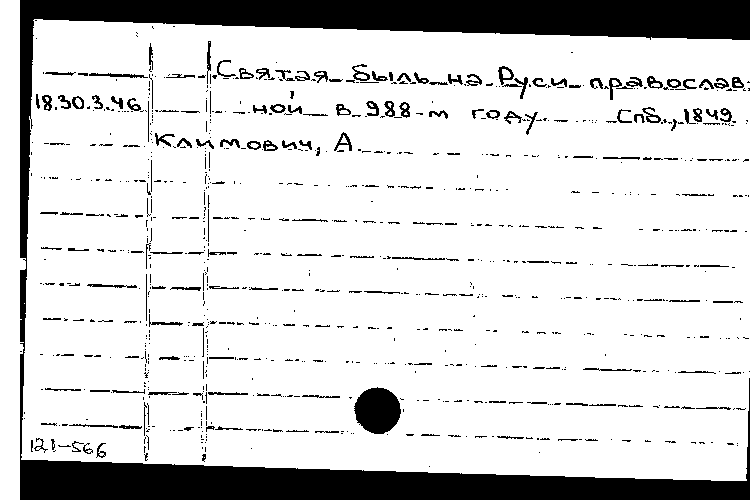 Святая быль на Руси православ-
18.30.3.46 ной в 988-м году Спб., 1849
Климович, А.
121-566